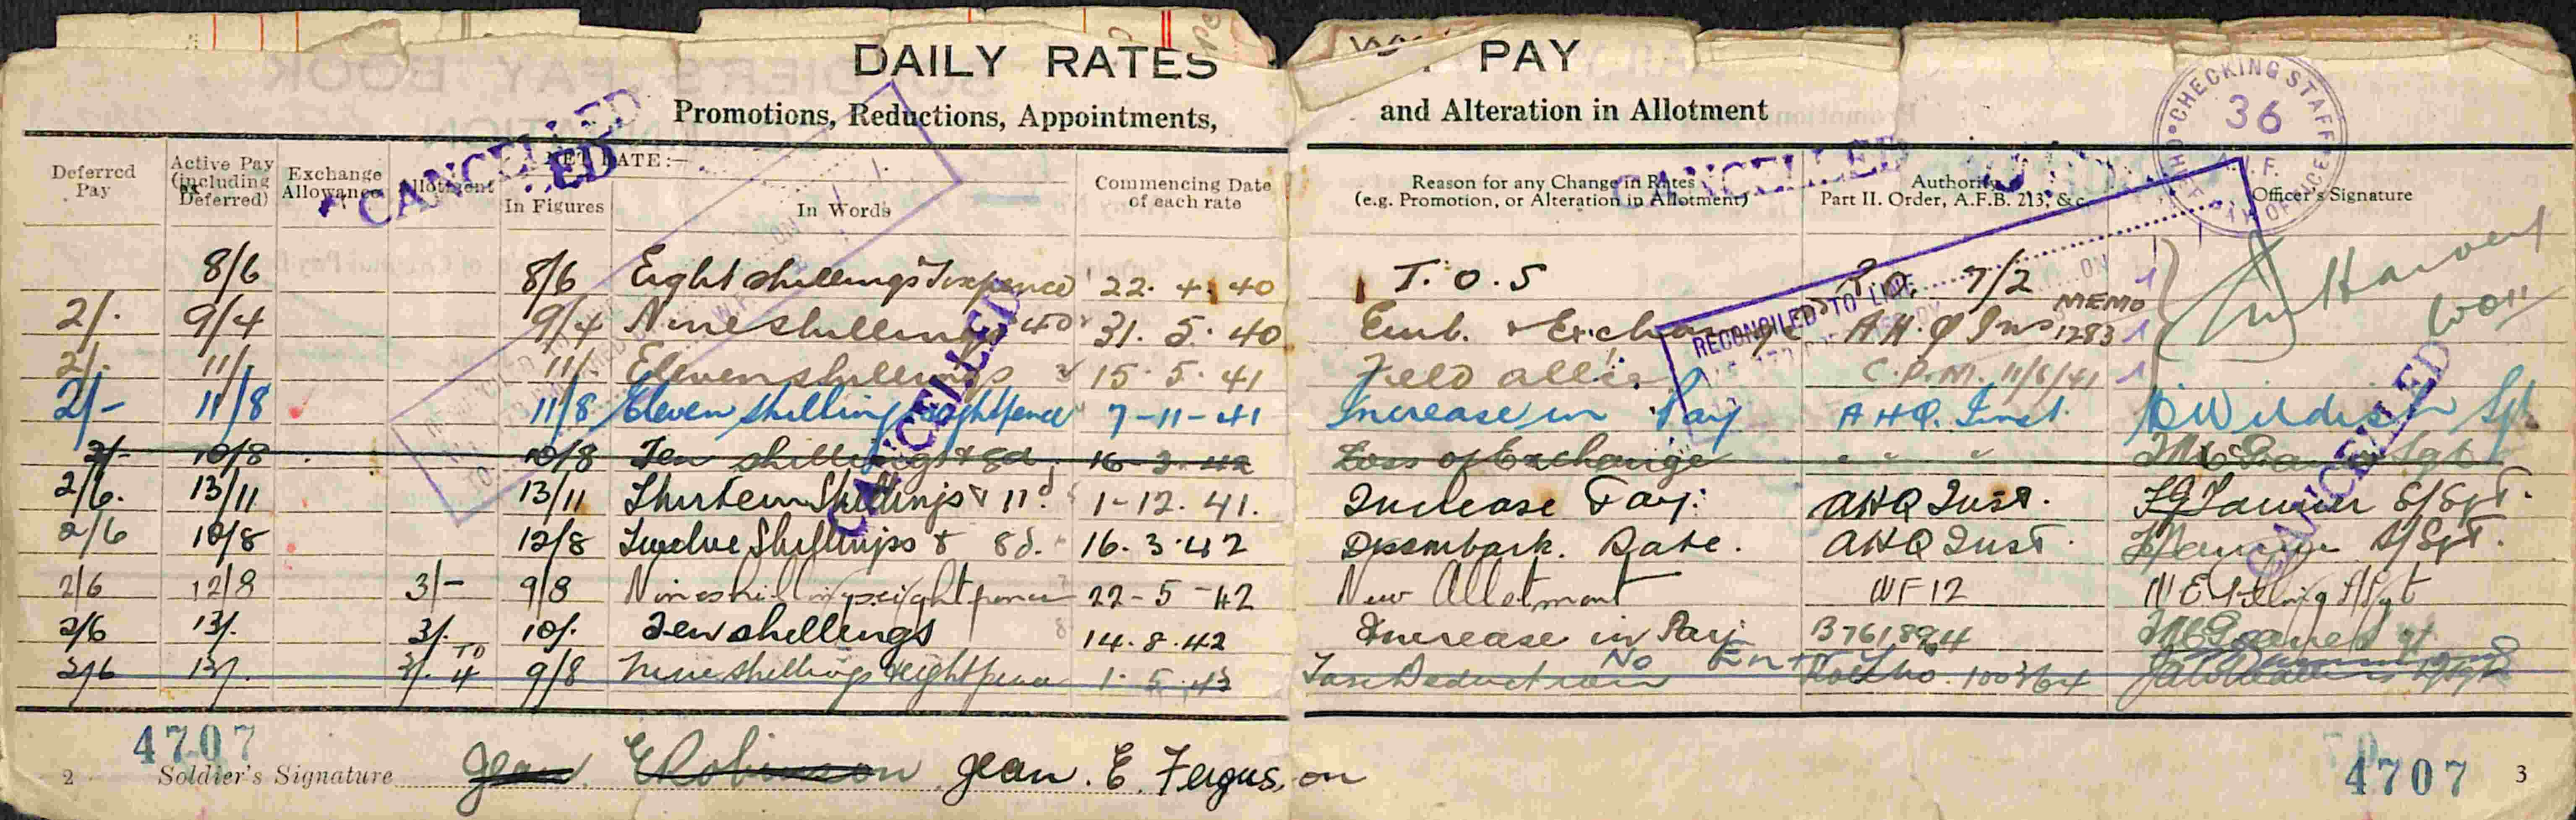 DAILY RATES PAY
Promotions, Reductions, Appointments, and Alteration in Allotment
CHECKING STAFF
36
A.I.F.
PAY OFFICE
CANCELLED
CANCELLED
Deferred Pay
Active Pay (including Deferred)
Exchange Allowance
Allotment
NET RATE:—
In Figures
In Words
Commencing Date of each rate
Reason for any Change in Rates (e.g. Promotion, or Alteration in Allotment)
Authority Part II. Order, A.F.B. 213, &c.
Officer's Signature
8/6 8/6 Eight shillings Sixpence 22. 4. 40 T.O.S 7/2
2/. 9/4 9/4 Nine shillings 4d 31. 5. 40 Emb. & Exchange A.H.Q Ins MEMO 1283
2/. 11/ 11/ Eleven shillings 15. 5. 41 Field allce C.P.M. 11/8/41
2/- 11/8 11/8 Eleven shilling eightpence 7-11-41 Increase in Pay AHQ. Inst. Sgt
2/- 10/8 10/8 Ten shillings & 8d. 16-3-42 Loss of Exchange " " " Sgt
2/6. 13/11 13/11 Thirteen Shillings & 11d 1-12.41. Increase Pay: AHQ Inst. S/Sgt.
2/6 12/8 12/8 Twelve Shillings & 8d. 16.3.42 Disembark. Rate. AHQ Inst. S/Sgt.
2/6 12/8 3/- 9/8 Nine shillings eightpence 22-5-42 New Allotment WF12 S/Sgt
2/6 13/. 3/. 10/. Ten shillings 14.8.42 Increase in Pay B761894
2/6 13/. 3/. TO 4 9/8 Nine shillings & eightpence 1.5.43 Tax Deduction No Entry 100364
RECONCILED TO
CANCELLED
CANCELLED
4707
2 Soldier's Signature Jean E Robinson Jean. E. Ferguson
4707 3